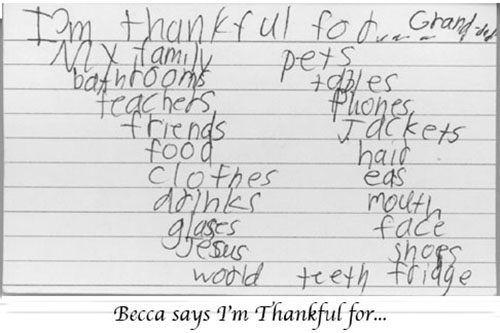 I'm thankful for... Grand-dad
My family pets
bathrooms tables
teachers phones
friends Jackets
food hair
clothes eas
drinks mouth
glases face
Jesus shoes
world teeth fridge
Becca says I'm Thankful for...